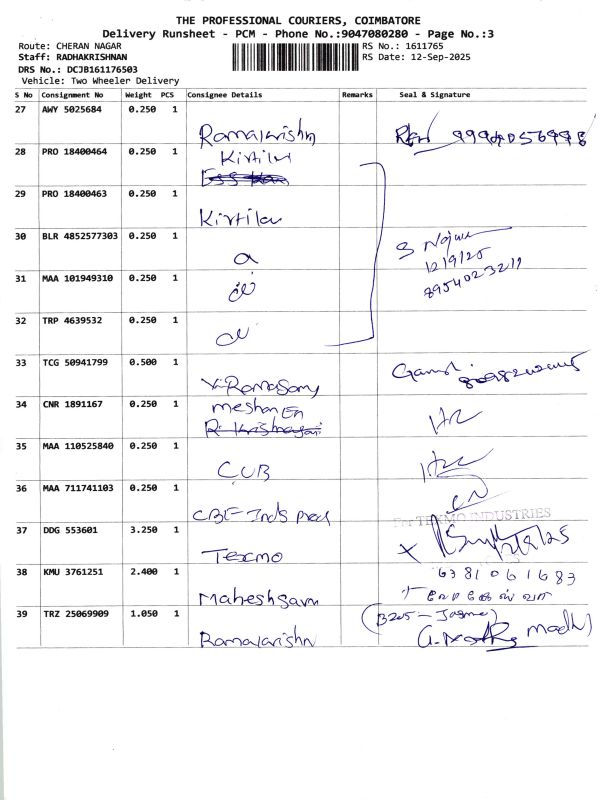 THE PROFESSIONAL COURIERS, COIMBATORE
Delivery Runsheet - PCM - Phone No.:9047080280 - Page No.:3
Route: CHERAN NAGAR RS No.: 1611765
Staff: RADHAKRISHNAN RS Date: 12-Sep-2025
DRS No.: DCJB161176503
Vehicle: Two Wheeler Delivery
S No Consignment No Weight PCS Consignee Details Remarks Seal & Signature
27 AWY 5025684 0.250 1
Ramakrishn
28 PRO 18400464 0.250 1 Kirtilal
29 PRO 18400463 0.250 1
Kirtilal
30 BLR 4852577303 0.250 1
12/9/25
8954023211
31 MAA 101949310 0.250 1
32 TRP 4639532 0.250 1
33 TCG 50941799 0.500 1
V. Ramasamy
34 CNR 1891167 0.250 1
35 MAA 110525840 0.250 1
CUB
36 MAA 711741103 0.250 1
TEXMO INDUSTRIES
37 DDG 553601 3.250 1
Texmo
38 KMU 3761251 2.400 1 6381061683
Maheshsam
39 TRZ 25069909 1.050 1
Ramakrishn